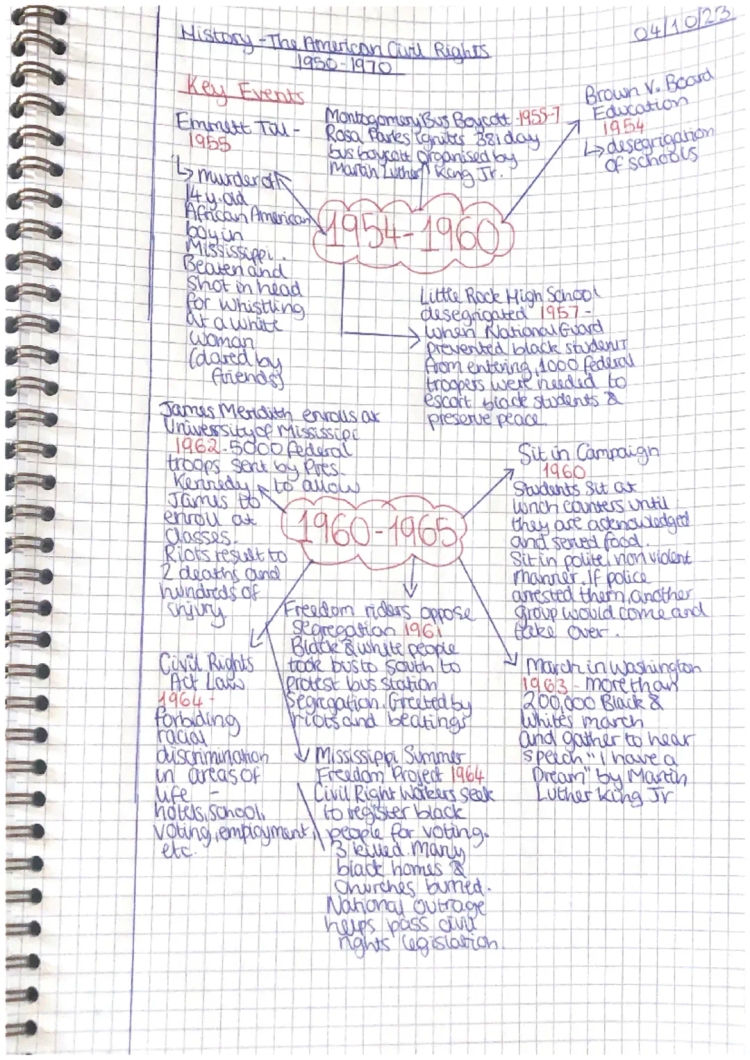 04/10/23
History - The American Civil Rights
1950-1970
Key Events
Emmett Till -
1955
↳ murder of
14 y.old
African American
boy in
Mississippi.
Beaten and
shot in head
for whistling
at a white
woman
(dared by
friends)
Montogomery Bus Boycott 1955-7
Rosa Parks ignites 381 day
bus boycott organised by
Martin Luther King Jr.
Brown V. Board
Education
1954
↳ desegrigation
of schools
1954-1960
Little Rock High School
desegrigated 1957 -
when National Guard
prevented black students
from entering, 1000 federal
troopers were needed to
escort black students &
preserve peace.
James Meridith enrolls at
University of Mississippi
1962 - 5000 Federal
troops sent by Pres.
Kennedy to allow
James to
enroll at
classes.
Riots result to
2 deaths and
hundreds of
injury
1960-1965
Sit in Campaign
1960
Students sit at
lunch counters until
they are acknowledged
and served food.
Sit in polite, non violent
manner. If police
arrested them, another
group would come and
take over.
Freedom riders oppose
segregation 1961
Black & white people
took bus to South to
protest bus station
segrigation. Greeted by
riots and beatings
Civil Rights
Act Law
1964 -
forbiding
racial
discrimination
in areas of
life -
hotels, school,
voting, employment
etc.
Mississippi Summer
Freedom Project 1964
Civil Right Workers seak
to register black
people for voting.
3 killed. Many
black homes &
Churches burned.
National outrage
helps pass civil
rights legislation.
March in Washington
1963 - more than
200,000 Black &
Whites march
and gather to hear
speech "I have a
Dream" by Martin
Luther King Jr